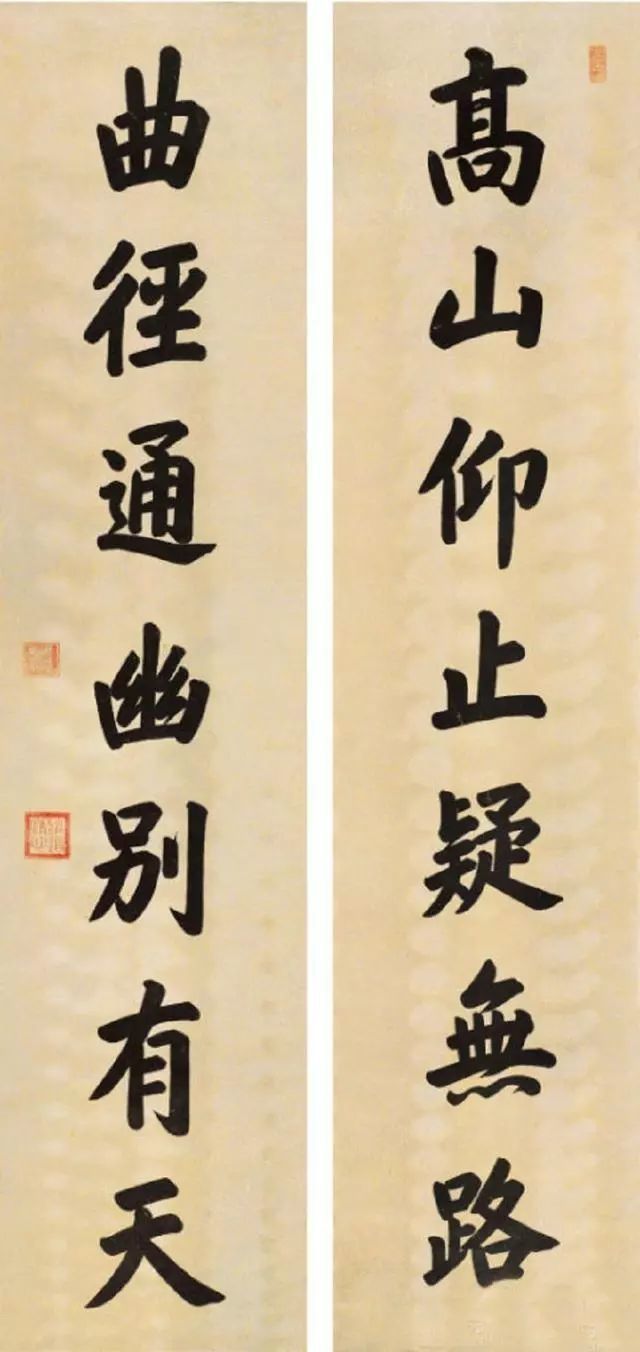 高山仰止疑無路
曲徑通幽别有天